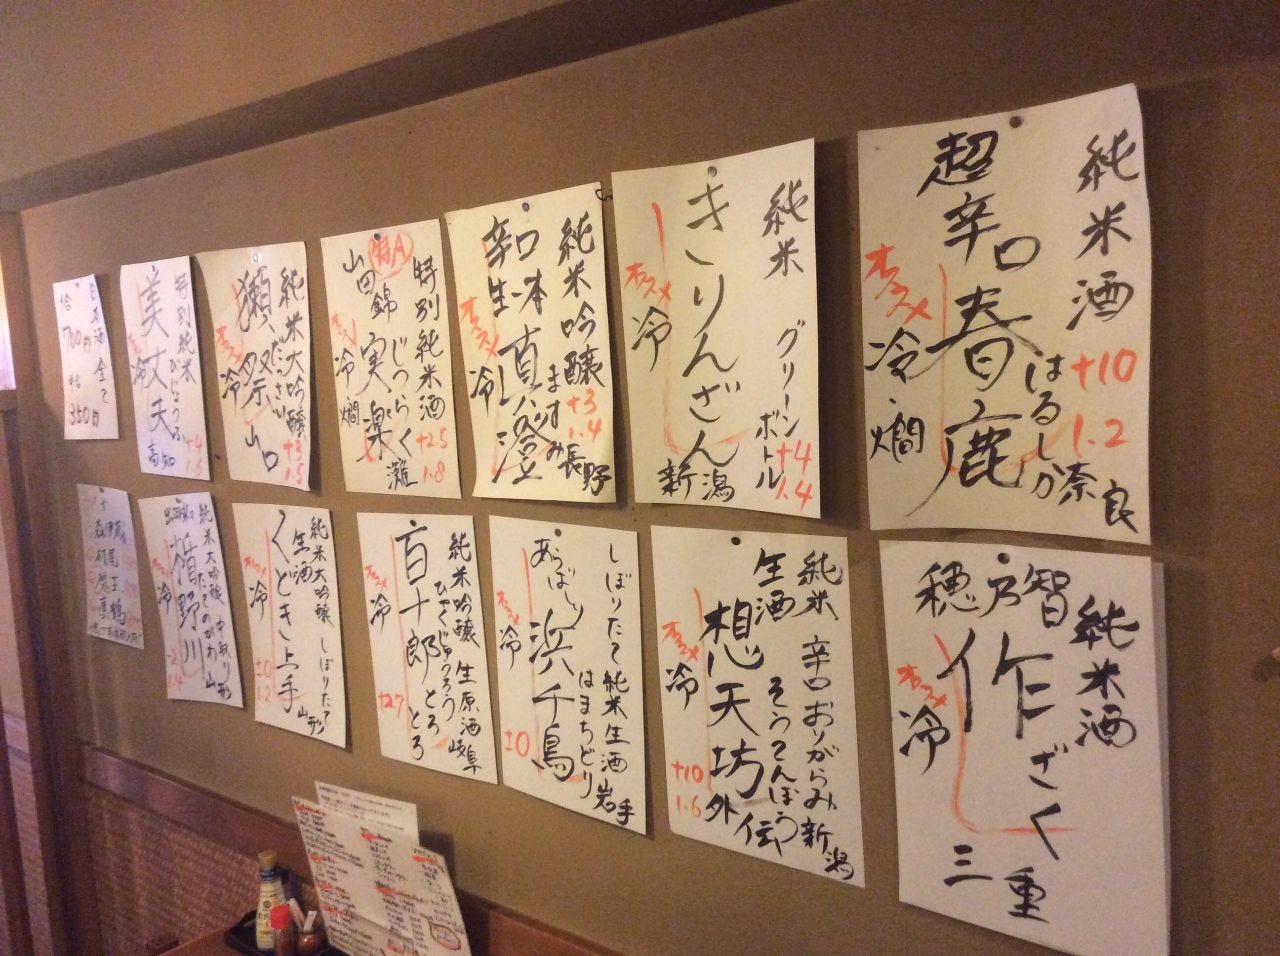 純米酒
+10
1.2
超辛口
春鹿
はるしか
奈良
オススメ
冷・燗
純米
グリーンボトル
+4
1.4
きりんざん
新潟
オススメ
冷
純米吟醸
+3
1.4
辛口
生一本
真澄
ますみ
長野
オススメ
冷
特別純米酒
+2.5
1.8
特A
山田錦
実楽
じつらく
灘
オススメ
冷・燗
純米大吟醸
+3
1.5
獺祭
だっさい
山口
オススメ
冷
特別純米
+4
1.6
美丈夫
びじょうふ
高知
冷
日本酒全て
700円
350円
純米酒
穂乃智
作
ざく
三重
オススメ
冷
純米 辛口おりがらみ
生酒
想天坊
そうてんぼう
外伝
新潟
オススメ
冷
+10
1.6
しぼりたて 純米生酒
あらばしり
浜千鳥
はまちどり
岩手
オススメ
冷
±0
純米吟醸 生原酒
百十郎
ひゃくじゅうろう
岐阜
オススメ
冷
純米大吟醸 しぼりたて
生酒
くどき上手
山形
冷
±0
1.2
純米大吟醸 中取り
出羽燦々
楯野川
たてのがわ
山形
オススメ
冷
-2
1.4